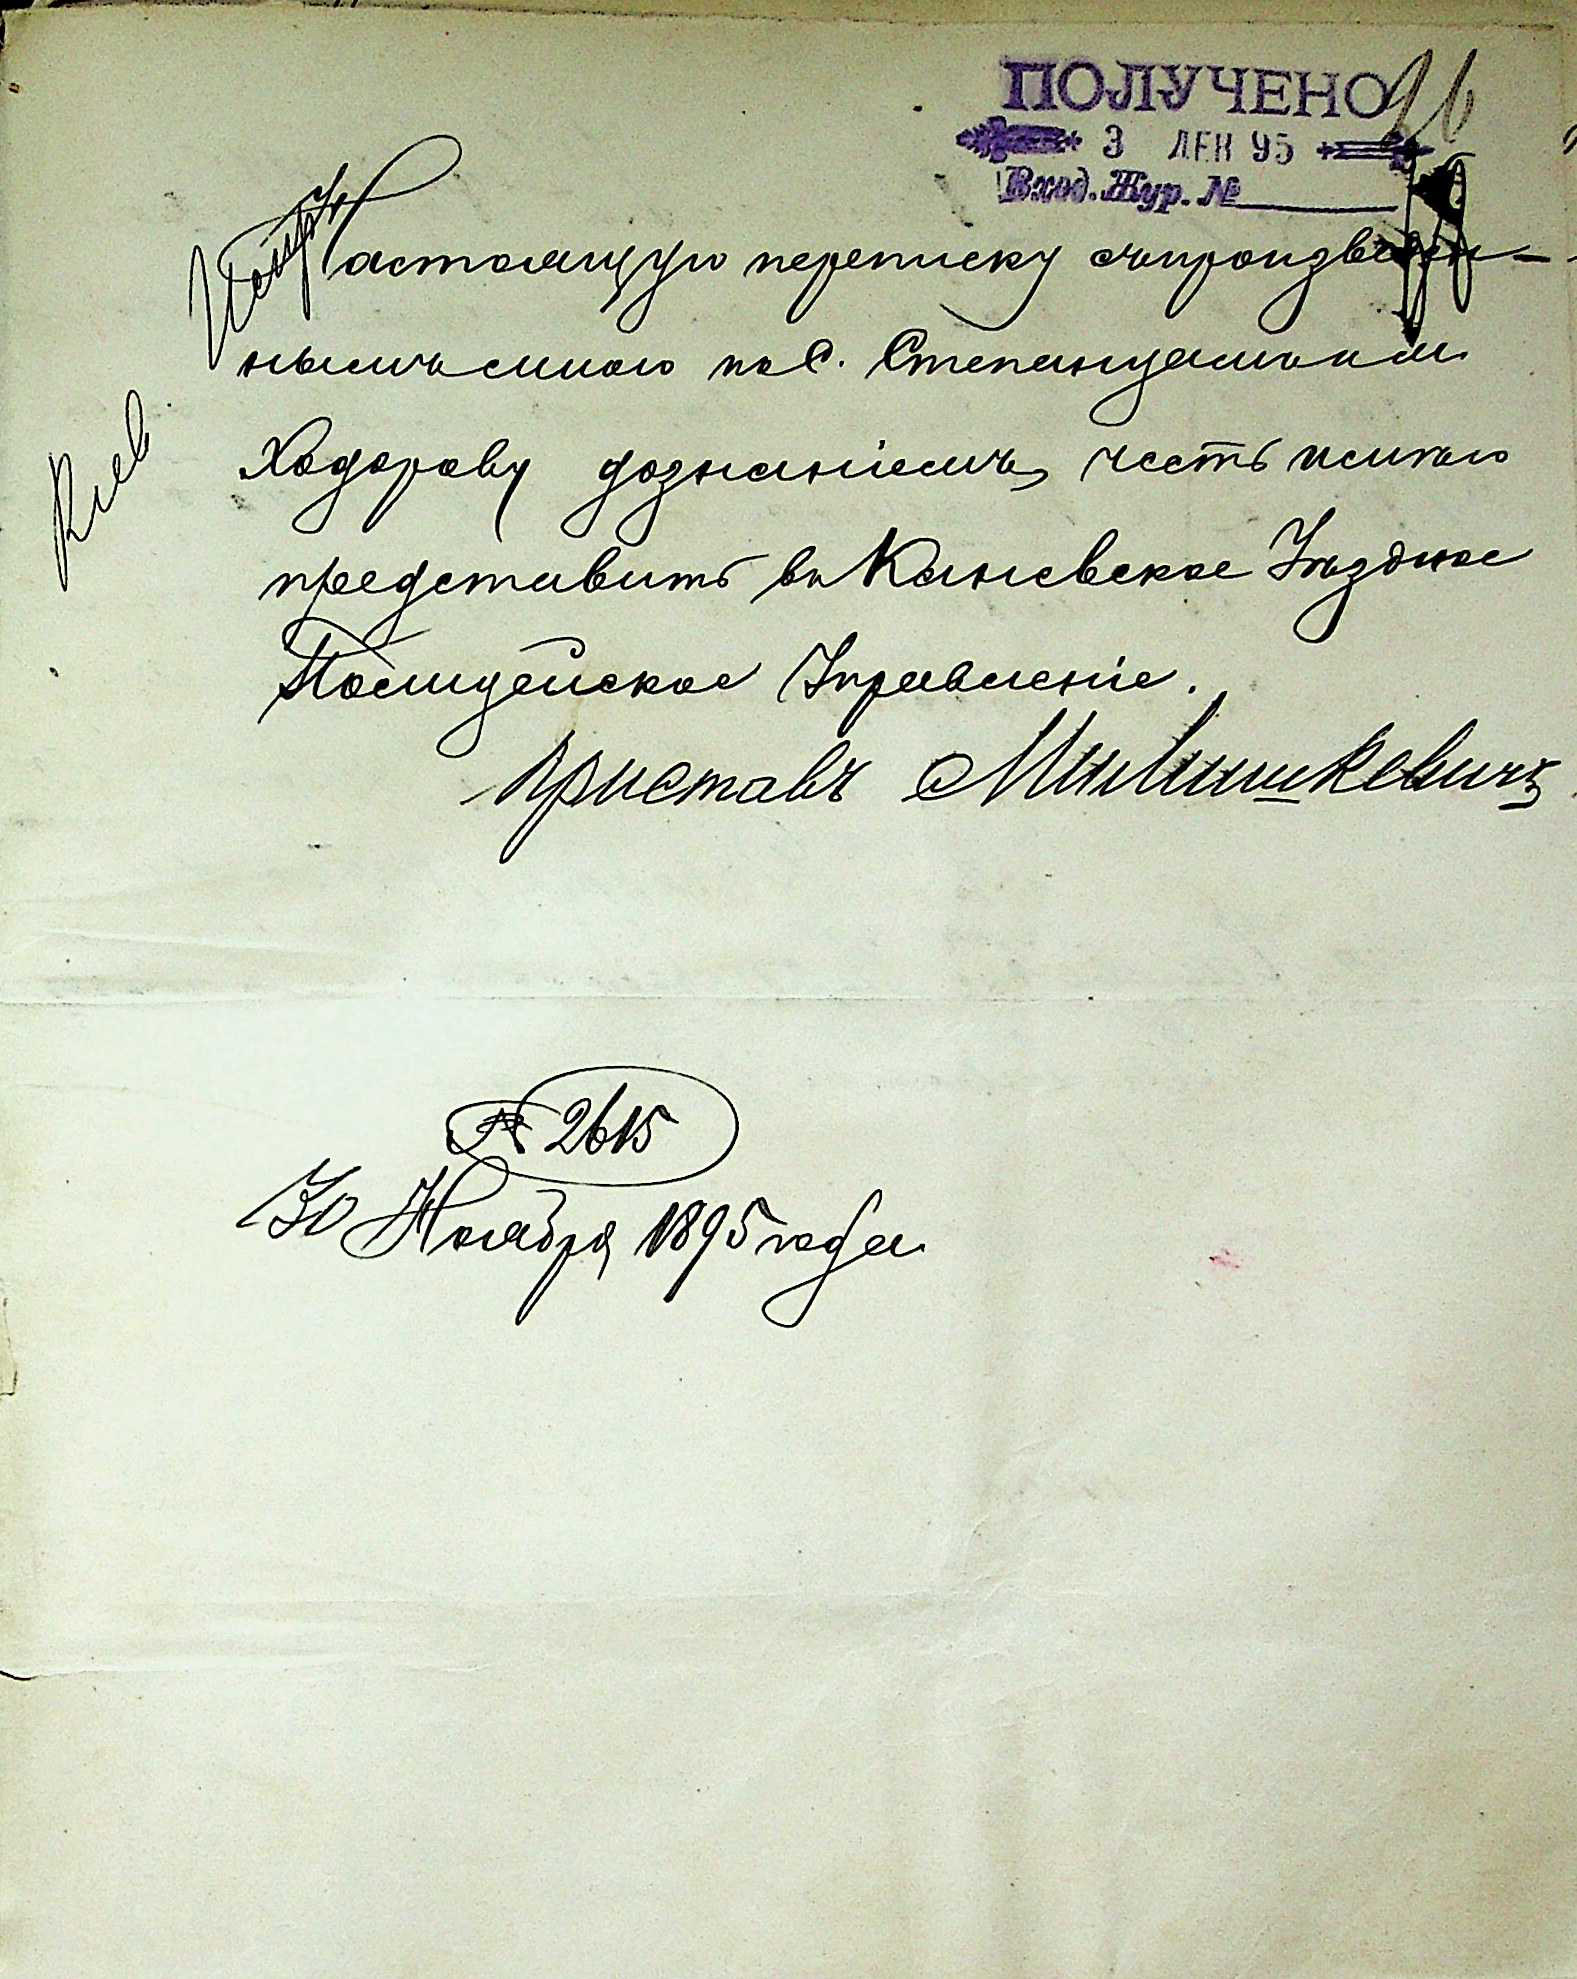 ПОЛУЧЕНО
3 ДЕК 95
Вход. Жур. №
Настоящую переписку съ произведен-
нымъ мною по с. Степанцамъ и м.
Ходорову дознаніемъ, честь имѣю
представить въ Каневское Уѣздное
Полицейское Управленіе.
Приставъ
№ 2615
30 Ноября 1895 года